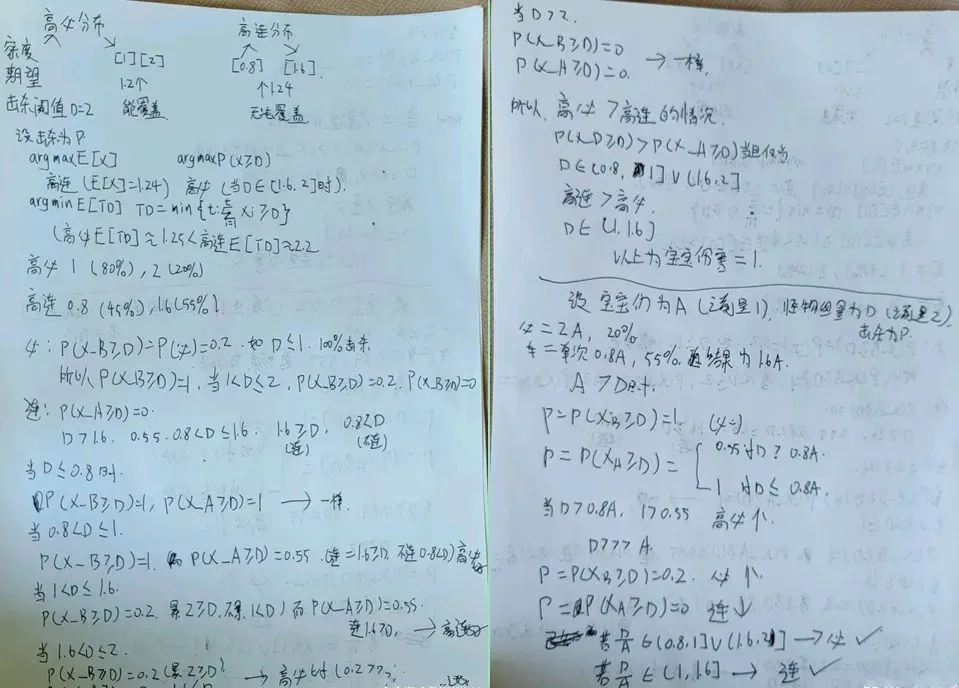 高必分布 高连分布
密度 [1][2] [0.8] [1.6]
期望 1.2个 1.24
击杀阈值D=2 能覆盖 无法覆盖
设击杀为P
argmaxE[X] argmaxP(X≥D)
高连(E[X]=1.24) 高必(当D∈[1.6,2]时)
argminE[TD] TD=min{t: Xi≥D}
(高必E[TD]≈1.25<高连E[TD]≈2.2
高必 1(80%), 2(20%)
高连 0.8(45%), 1.6(55%)
必: P(X_B≥D)=P(必)=0.2. 如D≤1. 100%击杀
所以P(X_B≥D)=1, 当1<D≤2, P(X_B≥D)=0.2. P(X_B≥D)=0
连: P(X_A≥D)=0.
D>1.6. 0.55. 0.8<D≤1.6. 1.6≥D, 0.8<D
(连) (不连)
当D≤0.8时.
P(X_B≥D)=1, P(X_A≥D)=1 → 一样.
当0.8<D≤1.
P(X_B≥D)=1. 而P(X_A≥D)=0.55. (连=1.6≥D. 不连0.8<D)高必
当1<D≤1.6.
P(X_B≥D)=0.2. 暴2≥D. 不暴1<D) 而P(X_A≥D)=0.55.
连1.6≥D, → 高连
当1.6<D≤2.
P(X_B≥D)=0.2(暴2≥D) → 高必
当D>2.
P(X_B≥D)=0
P(X_A≥D)=0. → 一样.
所以, 高必>高连的情况.
P(X_D≥D)>P(X_A≥D)当且仅当
D∈(0.8, 1]∨(1.6,2]
高连>高必.
D∈(1,1.6]
以上为宝宝伤害=1.
设宝宝伤为A(之前是1), 怪物血量为D(之前是2),
击杀为P.
必=2A, 20%
连=单次0.8A, 55%. 连结果为1.6A.
A≥D时.
P=P(X_B≥D)=1. (必)
P=P(X_A≥D)= 0.55 如D>0.8A.
1 如D≤0.8A.
当D>0.8A, 1>0.55 高必个.
D>>>A
P=P(X_B≥D)=0.2. 必↑.
P=P(X_A≥D)=0 连↓
若D/A∈(0.8,1]∨(1.6,2]→必✓
若D/A∈(1,1.6]→连✓